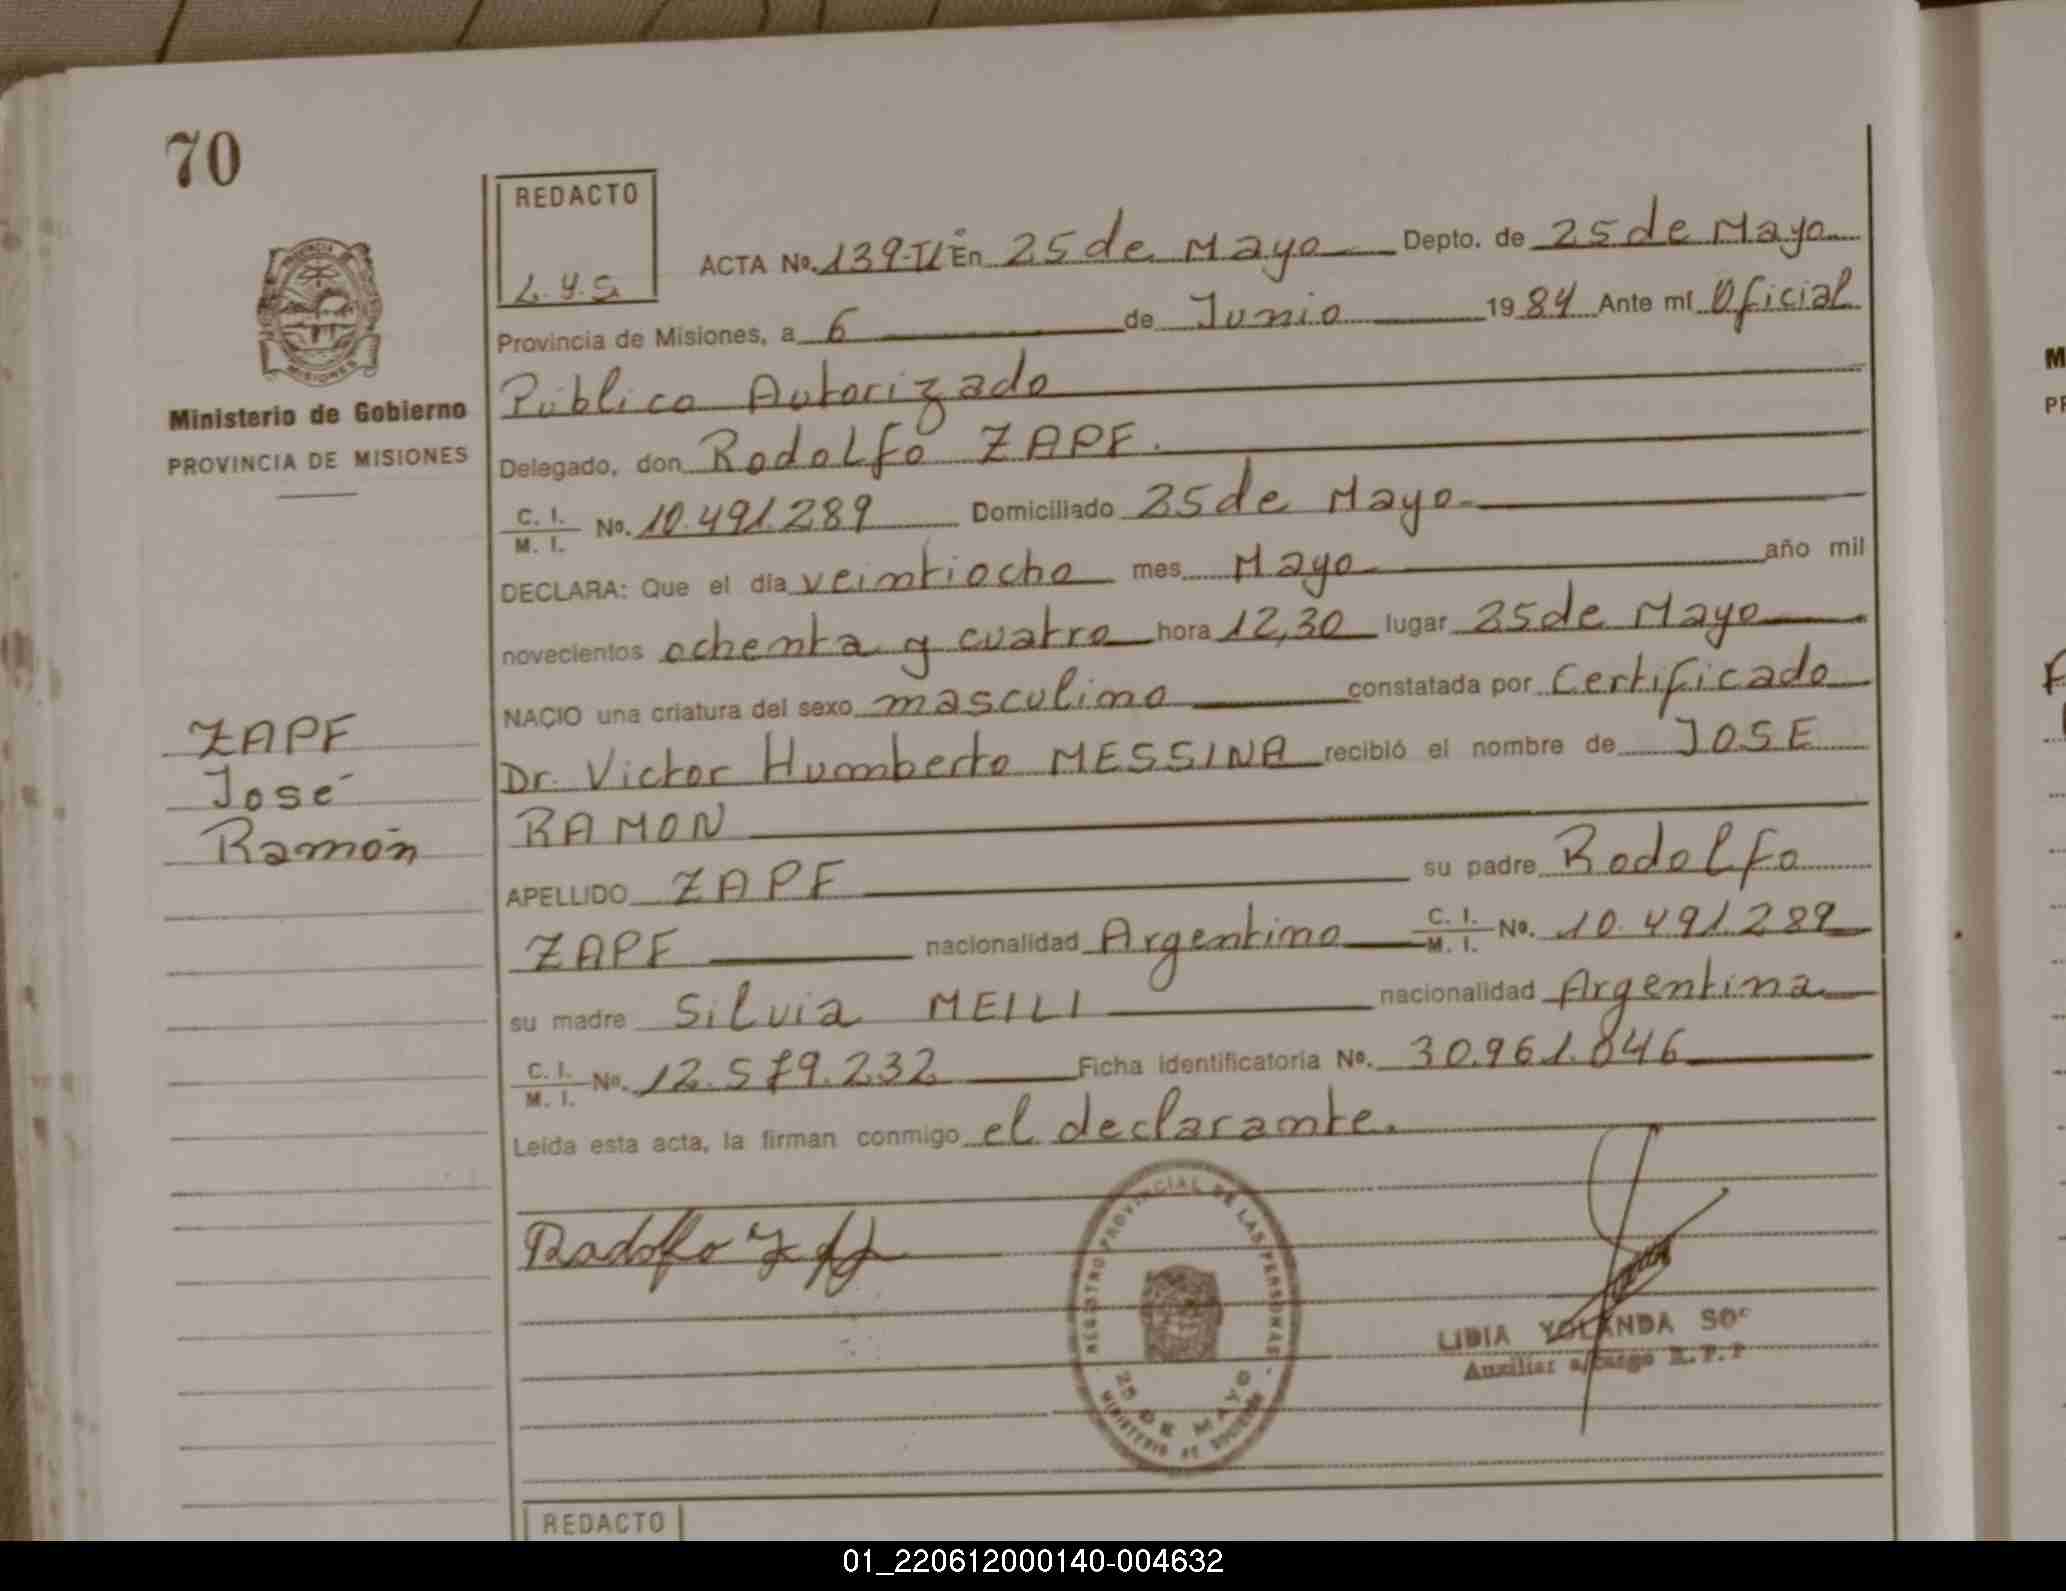 70
REDACTO
L.Y.S.
ACTA No. 139-TI En 25 de Mayo Depto. de 25 de Mayo
Provincia de Misiones, a 6 de Junio 1984 Ante mí Oficial
Público Autorizado
Ministerio de Gobierno
PROVINCIA DE MISIONES
Delegado, don Rodolfo ZAPF.
C. I. / M. I. No. 10.491.289 Domiciliado 25 de Mayo
DECLARA: Que el día veintiocho mes Mayo año mil
novecientos ochenta y cuatro hora 12,30 lugar 25 de Mayo
NACIO una criatura del sexo masculino constatada por Certificado
Dr. Victor Humberto MESSINA recibió el nombre de JOSE
RAMON
ZAPF
José
Ramón
APELLIDO ZAPF su padre Rodolfo
ZAPF nacionalidad Argentino C. I. / M. I. No. 10.491.289
su madre Silvia MEILI nacionalidad Argentina
C. I. / M. I. No. 12.579.232 Ficha identificatoria No. 30.961.046
Leída esta acta, la firman conmigo el declarante.
Rodolfo Zapf
REGISTRO PROVINCIAL DE LAS PERSONAS
25 DE MAYO
MINISTERIO DE GOBIERNO
LIDIA YOLANDA
Auxiliar a/cargo R.P.P
REDACTO
01_220612000140-004632